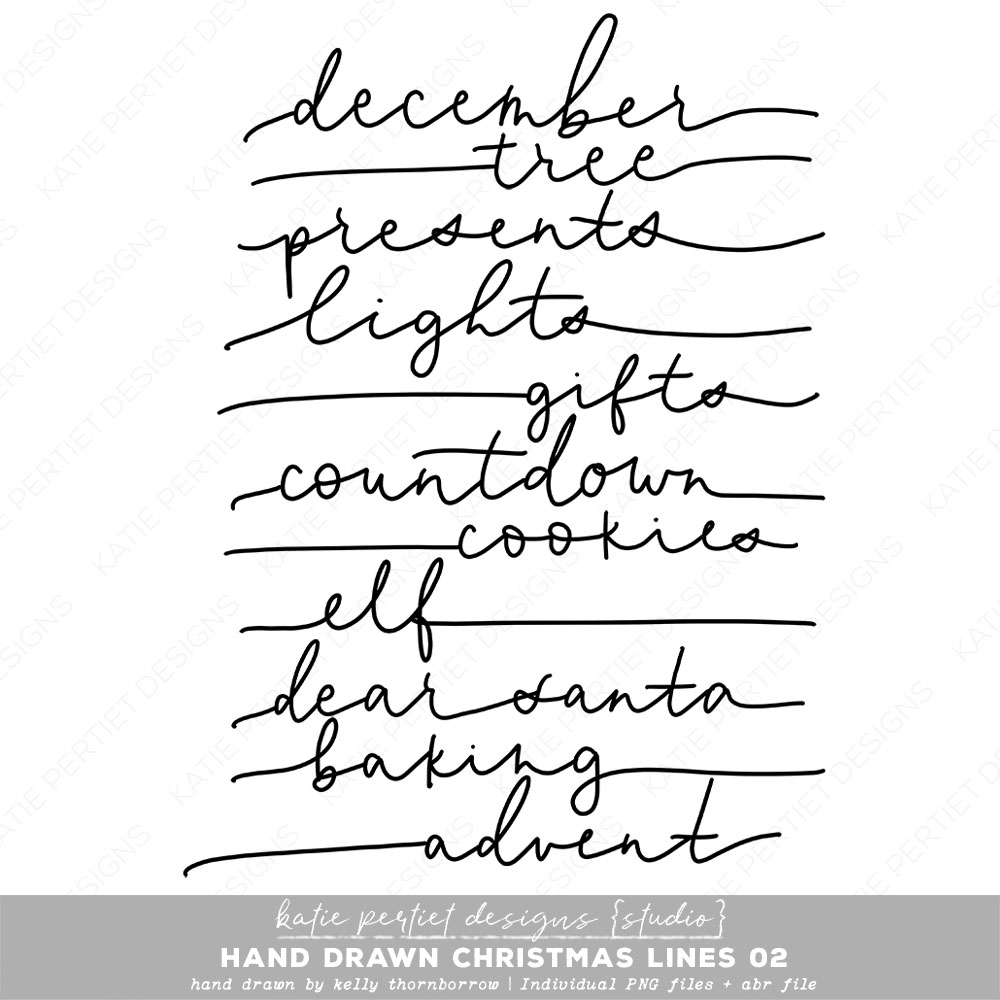 december
tree
presents
lights
gifts
countdown
cookies
elf
dear santa
baking
advent
katie pertiet designs {studio}
HAND DRAWN CHRISTMAS LINES 02
hand drawn by kelly thornborrow | Individual PNG files + abr file
KATIE PERTIET DESIGNS